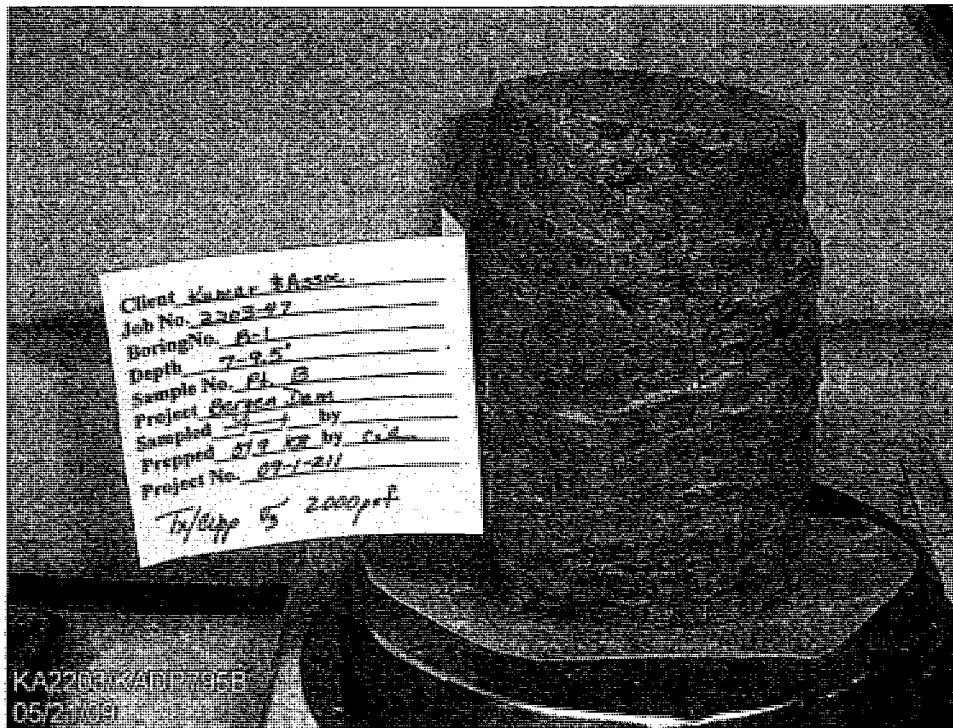 Client Kumar & Assoc.
Job No. 2203-47
Boring No. B-1
Depth 7-9.5'
Sample No. PL B
Project Bergen Dam
Sampled by
Prepped by
Project No. 09-1-211
2000 psf
05/21/09